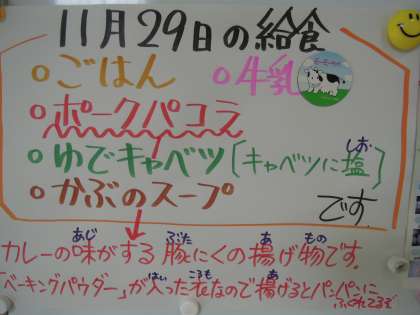 11月29日の給食
○ごはん ○牛乳
○ポークパコラ
○ゆでキャベツ〔キャベツに塩〕
○かぶのスープ です。
カレーの味がする豚にくの揚げ物です。
「ベーキングパウダー」が入った衣なので揚げるとパンパンに
ふくれてるぞ